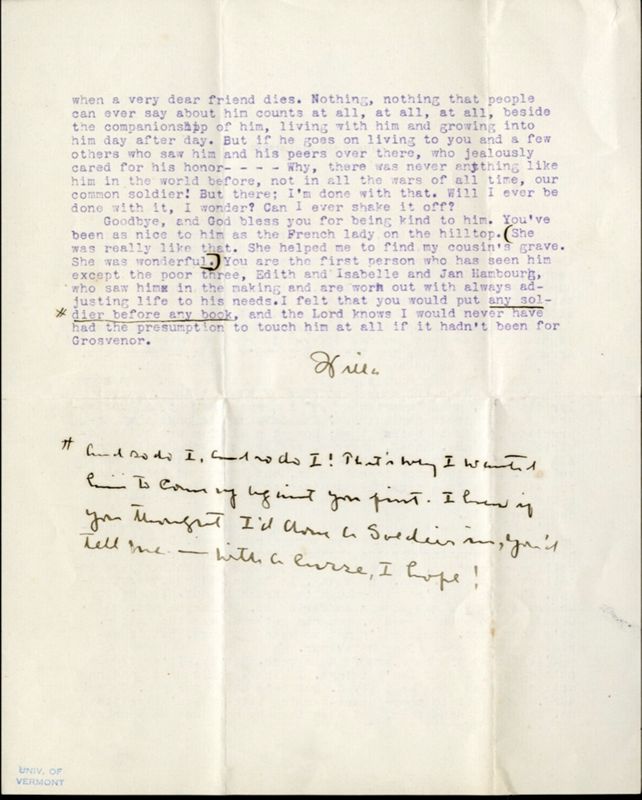 when a very dear friend dies. Nothing, nothing that people
can ever say about him counts at all, at all, at all, beside
the companionship of him, living with him and growing into
him day after day. But if he goes on living to you and a few
others who saw him and his peers over there, who jealously
cared for his honor- - - - Why, there was never anything like
him in the world before, not in all the wars of all time, our
common soldier! But there; I'm done with that. Will I ever be
done with it, I wonder? Can I ever shake it off?
Goodbye, and God bless you for being kind to him. You've
been as nice to him as the French lady on the hilltop. (She
was really like that. She helped me to find my cousin's grave.
She was wonderful.) You are the first person who has seen him
except the poor three, Edith and Isabelle and Jan Hambourg,
who saw him in the making and are worn out with always ad-
justing life to his needs. I felt that you would put any sol-
# dier before any book, and the Lord knows I would never have
had the presumption to touch him at all if it hadn't been for
Grosvenor.
Willa
# And so do I, and so do I! That's why I wanted
him to come up against you first. I knew if
you thought I'd done a Soldier in, you'd
tell me — with a curse, I hope!
UNIV. OF
VERMONT